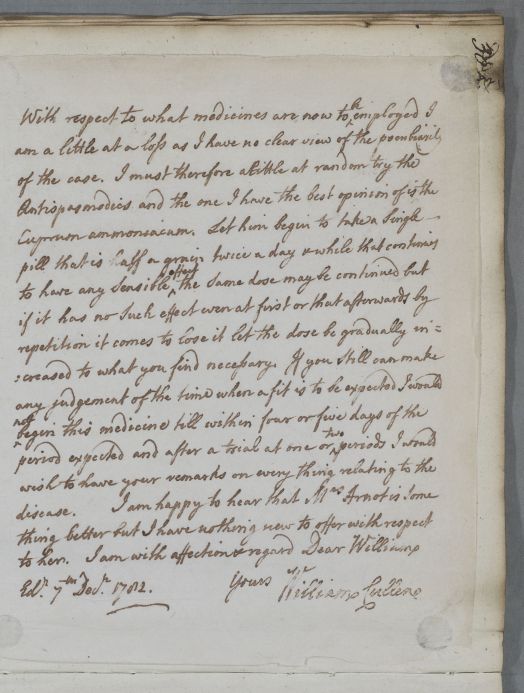 With respect to what medicines are now to be employed I
am a little at a loss as I have no clear view of the peculiarity
of the case. I must therefore a little at random try the
Antispasmodics and the one I have the best opinion of is the
Cuprum ammoniacum. Let him begin to take a Single
pill that is half a grain twice a day & while that continues
to have any Sensible effect the Same dose may be continued but
if it has no Such effect even at first or that afterwards by
repetition it comes to lose it let the dose be gradually in=
:creased to what you find necessary. If you Still can make
any judgement of the time when a fit is to be expected I would
not begin this medicine till within four or five days of the
period expected and after a trial at one or two periods I would
wish to have your remarks on every thing relating to the
disease. I am happy to hear that Mrs Arnot is Some
thing better but I have nothing new to offer with respect
to her. I am with affection & regard Dear William
Edr. 7th Decr. 1782. Yours William Cullen